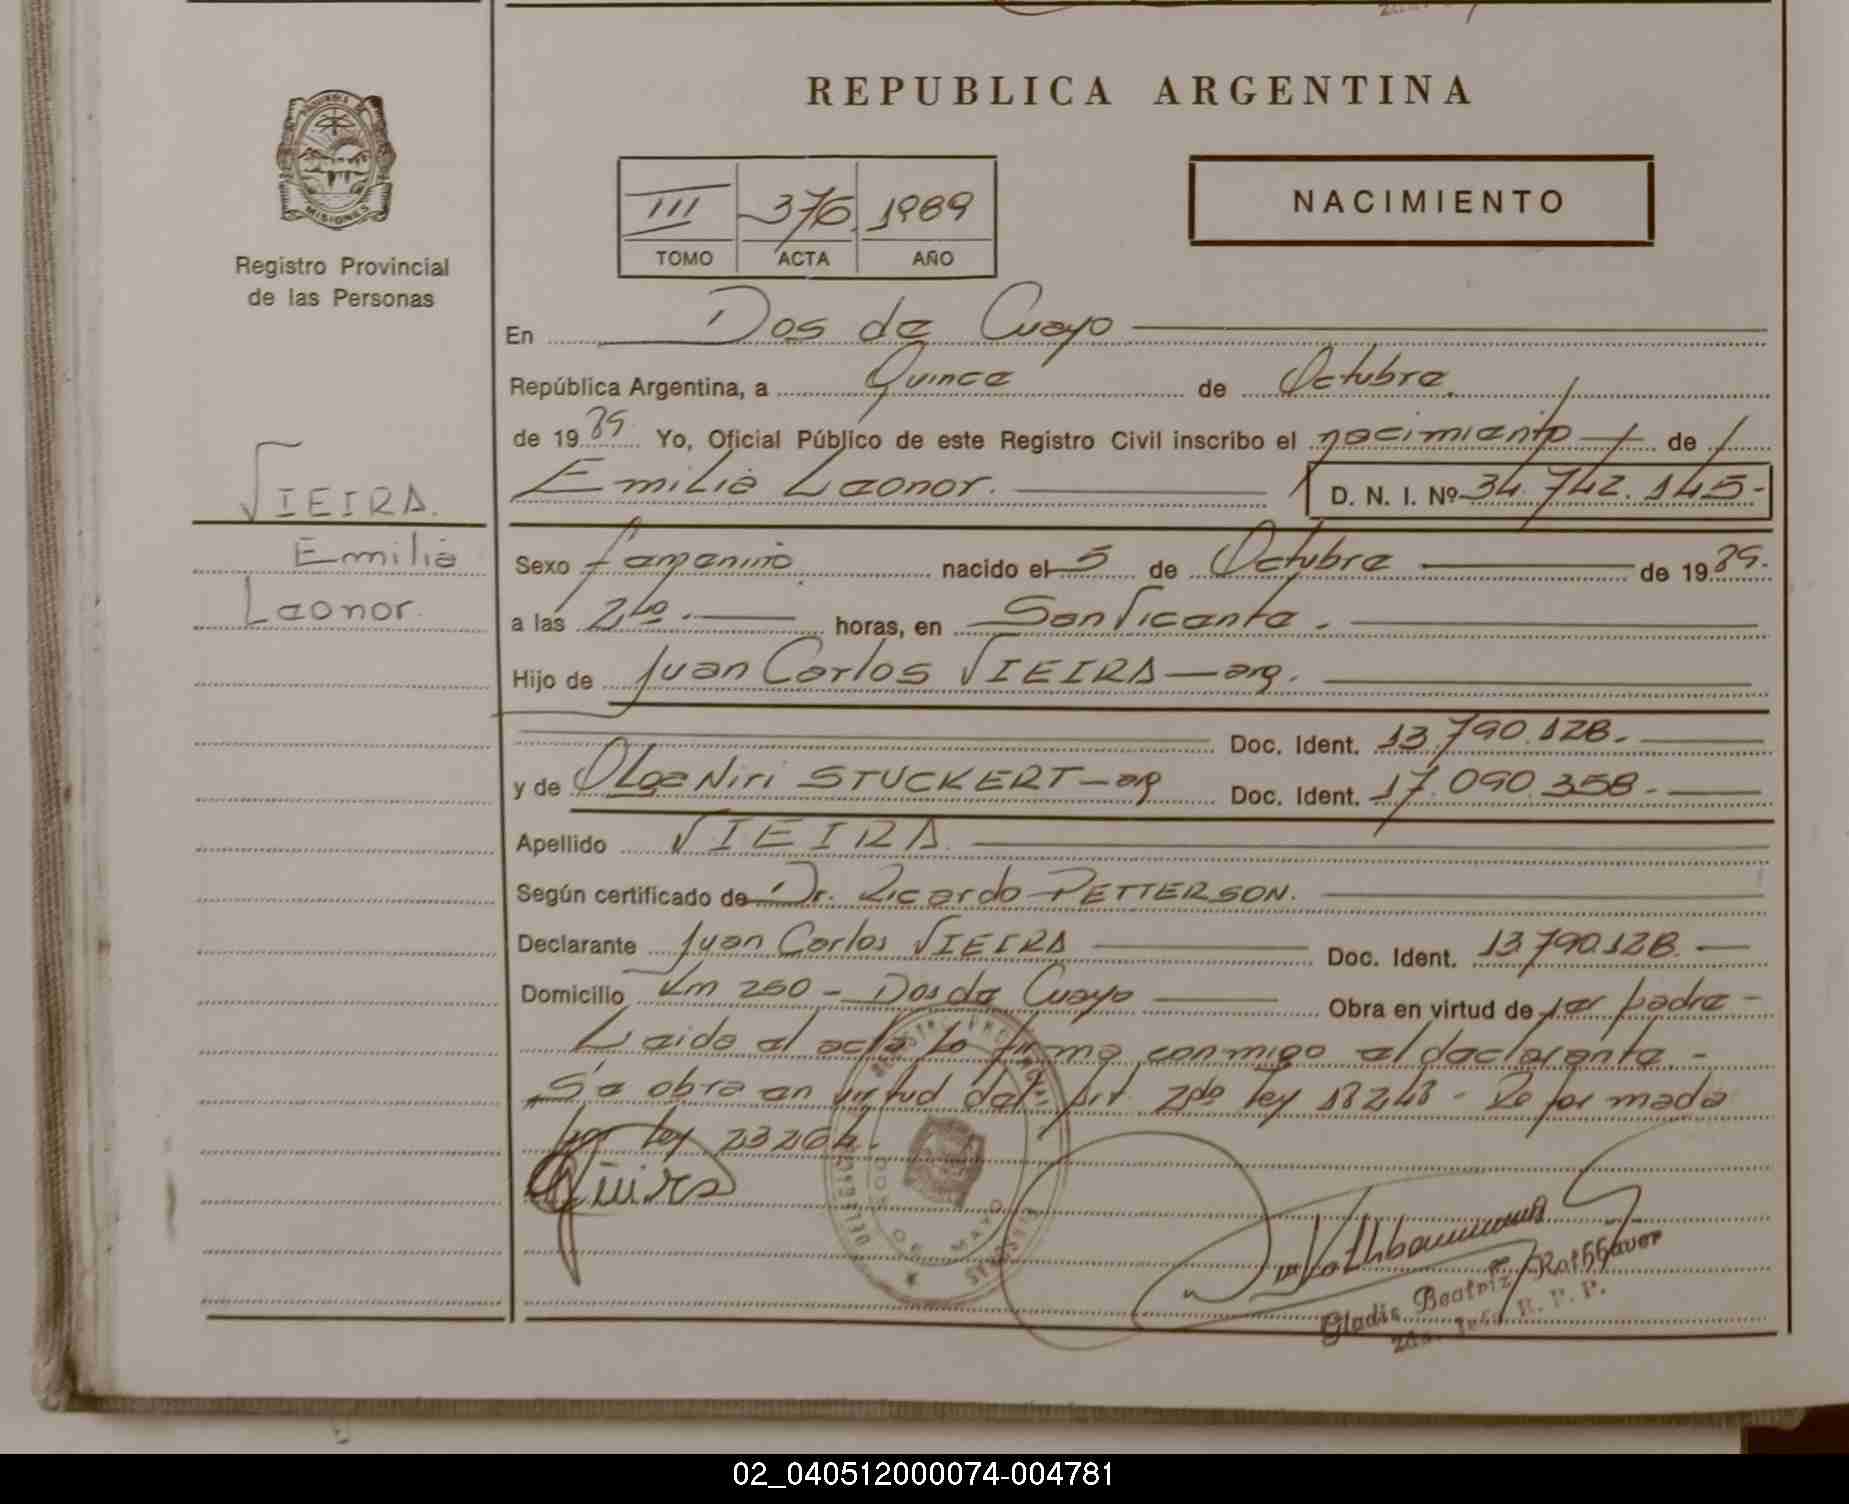 REPUBLICA ARGENTINA
MISIONES
Registro Provincial
de las Personas
III 376 1989
TOMO ACTA AÑO
NACIMIENTO
En Dos de Mayo
República Argentina, a Quince de Octubre
de 1989 Yo, Oficial Público de este Registro Civil inscribo el nacimiento de
Emilia Leonor. D. N. I. Nº 34.742.145-
VIEIRA.
Emilia
Leonor.
Sexo femenino nacido el 5 de Octubre de 1989.
a las horas, en San Vicente.
Hijo de Juan Carlos VIEIRA - arg.
Doc. Ident. 13.790.128.-
y de Olga Niri STUCKERT - arg Doc. Ident. 17.090.358.-
Apellido VIEIRA
Según certificado de Dr. Ricardo PETTERSON.
Declarante Juan Carlos VIEIRA Doc. Ident. 13.790.128.
Domicilio Km 250 - Dos de Mayo Obra en virtud de ser padre -
Leida el acta la firma conmigo el declarante. -
Se obra en virtud del Art. 2do ley 18248 - Reformada
por ley 23264.
DOS DE MAYO
MISIONES
Gladis Beatriz Rothbauer
2da. Jefe R. P. P.
02_040512000074-004781